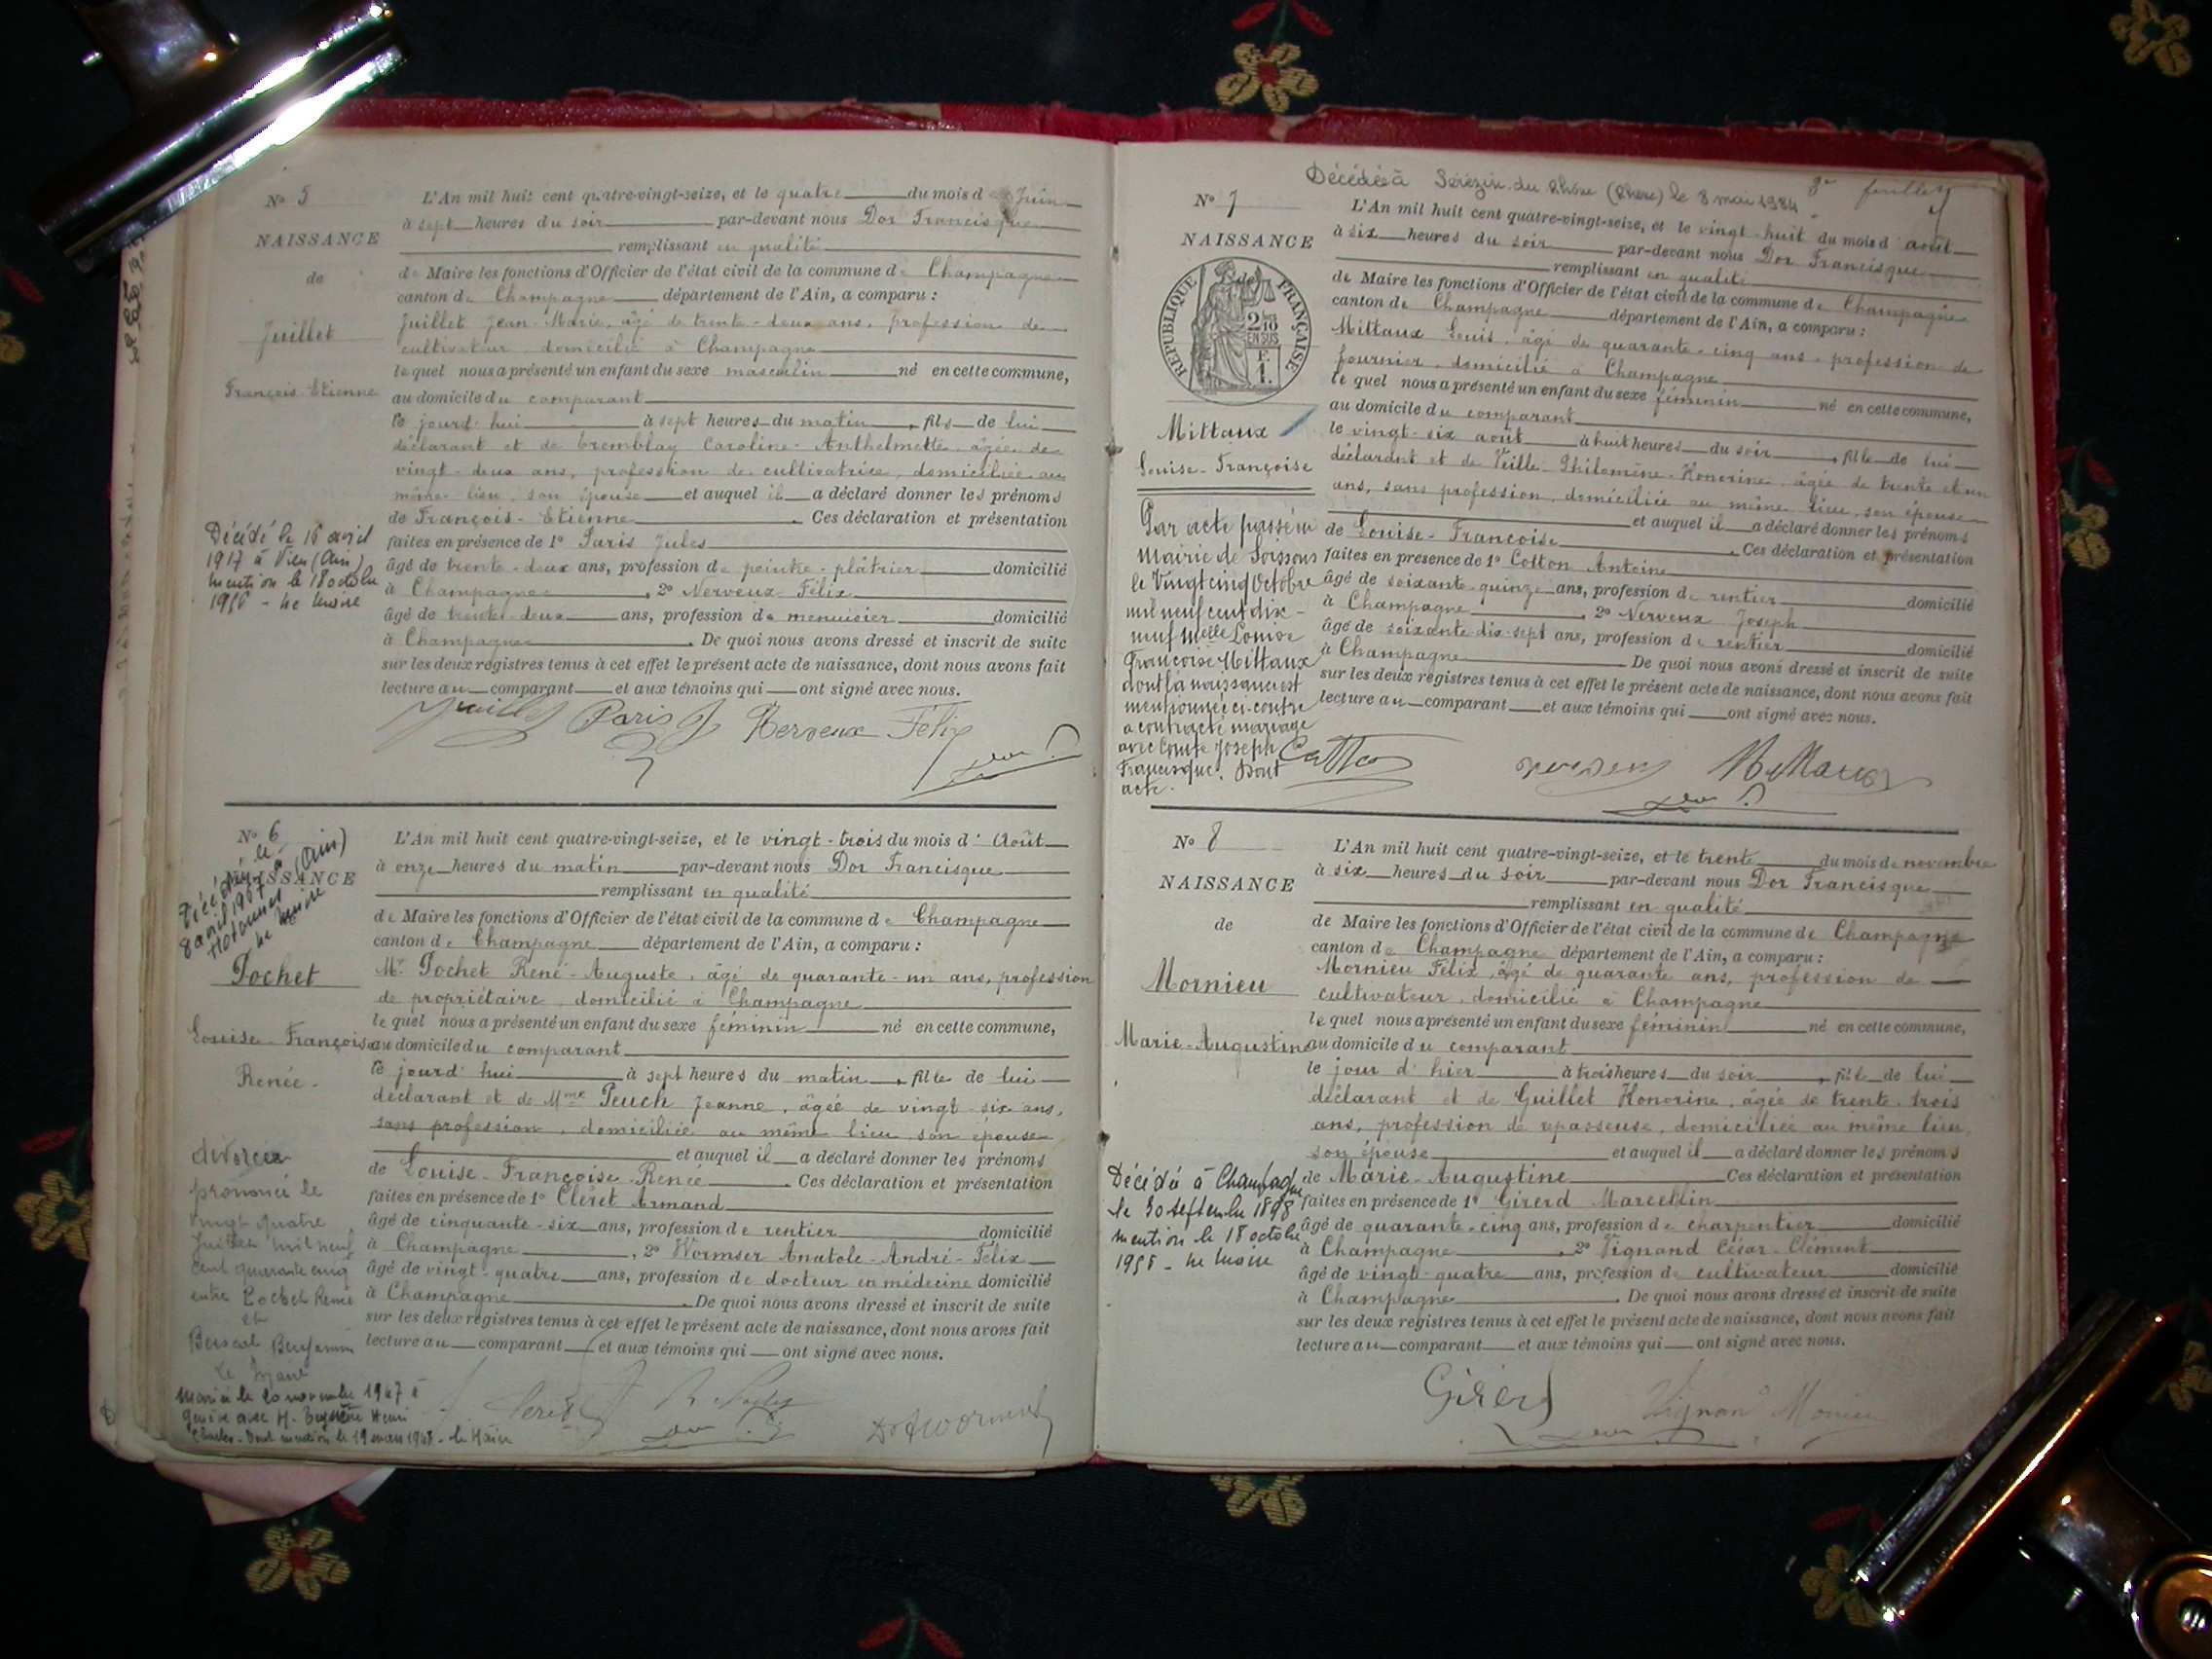 N° 5
NAISSANCE
de
Juillet
François-Etienne
Décédé le 16 avril
1917 à Vieu (Ain)
mention le 18 octobre
1956 - le Maire
L'An mil huit cent quatre-vingt-seize, et le quatre du mois de Juin
à sept heures du soir par-devant nous Dor Francisque
remplissant en qualité
de Maire les fonctions d'Officier de l'état civil de la commune de Champagne
canton de Champagne département de l'Ain, a comparu :
Juillet Jean-Marie, âgé de trente-deux ans, profession de
cultivateur, domicilié à Champagne
lequel nous a présenté un enfant du sexe masculin né en cette commune,
au domicile du comparant
le jourd'hui à sept heures du matin, fils de lui
déclarant et de Tremblay Caroline-Anthelmette, âgée de
vingt-deux ans, profession de cultivatrice, domiciliée au
même lieu, son épouse et auquel il a déclaré donner les prénoms
de François-Etienne. Ces déclaration et présentation
faites en présence de 1° Paris Jules
âgé de trente-deux ans, profession de peintre-plâtrier domicilié
à Champagne, 2° Nerveux Félix
âgé de trente-deux ans, profession de menuisier domicilié
à Champagne. De quoi nous avons dressé et inscrit de suite
sur les deux registres tenus à cet effet le présent acte de naissance, dont nous avons fait
lecture au comparant et aux témoins qui ont signé avec nous.
Juillet Paris J Nerveux Félix
Dor F
N° 6
NAISSANCE
Décédée le
8 avril 1987 à
Hotonnes (Ain)
le Maire
Pochet
Louise-Françoise
Renée.
divorcée
prononcé le
vingt quatre
Juillet mil neuf
cent quarante cinq
entre Pochet Renée
et
Benjamin
Le Maire
Mariée le 20 novembre 1947 à
Genève avec M. Henri
Charles - Dont mention le 19 mars 1948 - le Maire
L'An mil huit cent quatre-vingt-seize, et le vingt-trois du mois d'Août
à onze heures du matin par-devant nous Dor Francisque
remplissant en qualité
de Maire les fonctions d'Officier de l'état civil de la commune de Champagne
canton de Champagne département de l'Ain, a comparu :
Mr Pochet René-Auguste, âgé de quarante-un ans, profession
de propriétaire, domicilié à Champagne
lequel nous a présenté un enfant du sexe féminin né en cette commune,
au domicile du comparant
le jourd'hui à sept heures du matin, fille de lui
déclarant et de Mme Peuch Jeanne, âgée de vingt-six ans,
sans profession, domiciliée au même lieu, son épouse
et auquel il a déclaré donner les prénoms
de Louise-Françoise-Renée. Ces déclaration et présentation
faites en présence de 1° Cléret Armand
âgé de cinquante-six ans, profession de rentier domicilié
à Champagne, 2° Wormser Anatole-André-Félix
âgé de vingt-quatre ans, profession de docteur en médecine domicilié
à Champagne. De quoi nous avons dressé et inscrit de suite
sur les deux registres tenus à cet effet le présent acte de naissance, dont nous avons fait
lecture au comparant et aux témoins qui ont signé avec nous.
Cléret
Dr A Wormser
Décédée à Sérézin du Rhône (Rhône) le 8 mai 1984
3e feuillet
N° 7
NAISSANCE
de
RÉPUBLIQUE FRANÇAISE
2/10 EN SUS
F. 1.
Mittaux
Louise-Françoise
Par acte passé en
Mairie de Soissons
le Vingt cinq Octobre
mil neuf cent dix-
neuf Melle Louise
Françoise Mittaux
dont la naissance est
mentionnée ci-contre
a contracté mariage
avec Comte Joseph
Francisque. Dont
acte.
L'An mil huit cent quatre-vingt-seize, et le vingt-huit du mois d'août
à six heures du soir par-devant nous Dor Francisque
remplissant en qualité
de Maire les fonctions d'Officier de l'état civil de la commune de Champagne
canton de Champagne département de l'Ain, a comparu :
Mittaux Louis, âgé de quarante-cinq ans, profession de
fournier, domicilié à Champagne
lequel nous a présenté un enfant du sexe féminin né en cette commune,
au domicile du comparant
le vingt-six août à huit heures du soir, fille de lui
déclarant et de Veille Philomène-Honorine, âgée de trente et un
ans, sans profession, domiciliée au même lieu, son épouse
et auquel il a déclaré donner les prénoms
de Louise-Françoise. Ces déclaration et présentation
faites en présence de 1° Cotton Antoine
âgé de soixante-quinze ans, profession de rentier domicilié
à Champagne, 2° Nerveux Joseph
âgé de soixante-dix-sept ans, profession de rentier domicilié
à Champagne De quoi nous avons dressé et inscrit de suite
sur les deux registres tenus à cet effet le présent acte de naissance, dont nous avons fait
lecture au comparant et aux témoins qui ont signé avec nous.
Cotton Mittaux
N° 8
NAISSANCE
de
Mornieu
Marie-Augustine
Décédée à Champagne
le 30 septembre 1898
mention le 18 octobre
1956 - le Maire
L'An mil huit cent quatre-vingt-seize, et le trente du mois de novembre
à six heures du soir par-devant nous Dor Francisque
remplissant en qualité
de Maire les fonctions d'Officier de l'état civil de la commune de Champagne
canton de Champagne département de l'Ain, a comparu :
Mornieu Félix, âgé de quarante ans, profession de
cultivateur, domicilié à Champagne
lequel nous a présenté un enfant du sexe féminin né en cette commune,
au domicile du comparant
le jour d'hier à trois heures du soir, fille de lui
déclarant et de Guillet Honorine, âgée de trente-trois
ans, profession de repasseuse, domiciliée au même lieu,
son épouse et auquel il a déclaré donner les prénoms
de Marie-Augustine Ces déclaration et présentation
faites en présence de 1° Girerd Marcellin
âgé de quarante-cinq ans, profession de charpentier domicilié
à Champagne, 2° Vignand César-Clément
âgé de vingt-quatre ans, profession de cultivateur domicilié
à Champagne. De quoi nous avons dressé et inscrit de suite
sur les deux registres tenus à cet effet le présent acte de naissance, dont nous avons fait
lecture au comparant et aux témoins qui ont signé avec nous.
Girerd Vignand Mornieu